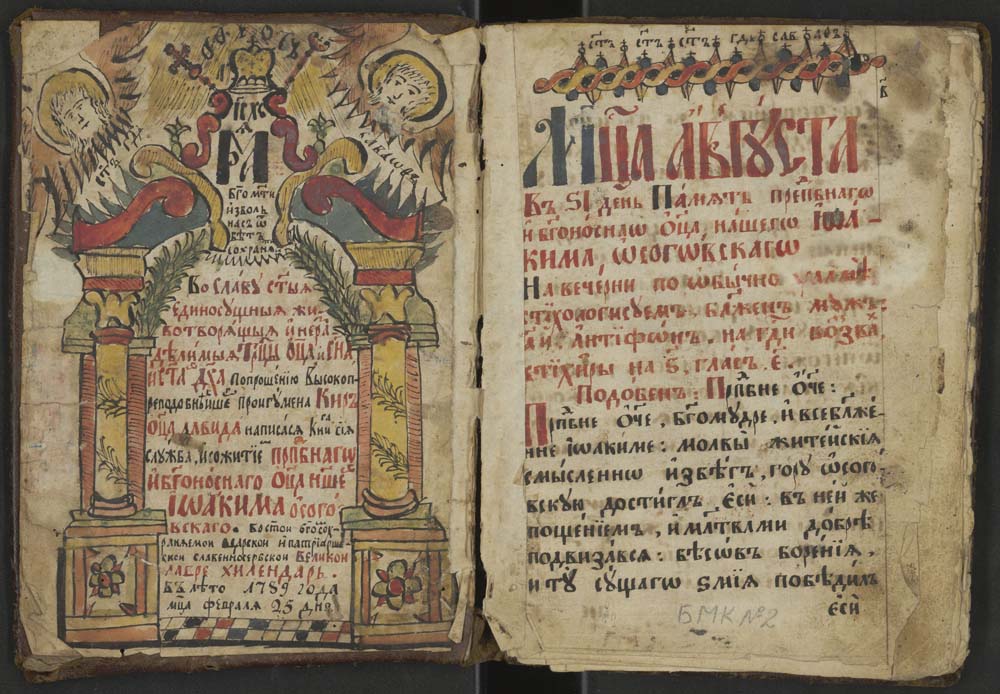 БГОМТИ
ИЗВОЛЬ
НАСЪ Ѿ
БѢТЪ
СОХРАНЯ
Во Славу стыѧ
Единосущныѧ жи-
вотворѧщыѧ и нера
дѣлимыѧ Трцы Оца и сна
и ста дха попрошенїю Высокоп-
реподобнѣйше проигумена Киръ
Оца Давида написасѧ Книга сїѧ
служба, и сожитїе прпбнагѡ
и бгоноснаго Оца нше
Іѡакима осого-
вскаго.
Великои
лавре Хиленdaрь.
въ лѣто 1789 года
мца февраля 25 днѧ
Мца аѵгуста
Въ ЅІ день Памѧть прпбнагѡ
и бгоноснаѡ Оца нашегѡ Іѡа-
кима, ѡсоговскагѡ
На вечерни по ѡбычно
стїхологисуемъ. Бажен мужъ.
а҃. антїфѡн. на гди возва
стїхиры на ѕ. гласъ. є.
Подобен: Прпбне оче:
Прпбне Оче, бгомудре, и всеблаже-
нне Іѡакиме: молвы житейскїѧ
смысленнѡ избѣгъ, гору ѡсого-
вскую достиглъ еси: въ ней же
пощенїемъ, и млтвами добрѣ
подвизавсѧ: бѣсѡвъ боренїѧ,
и ту сущагѡ ѕмїѧ побѣдилъ
еси
БМК №2